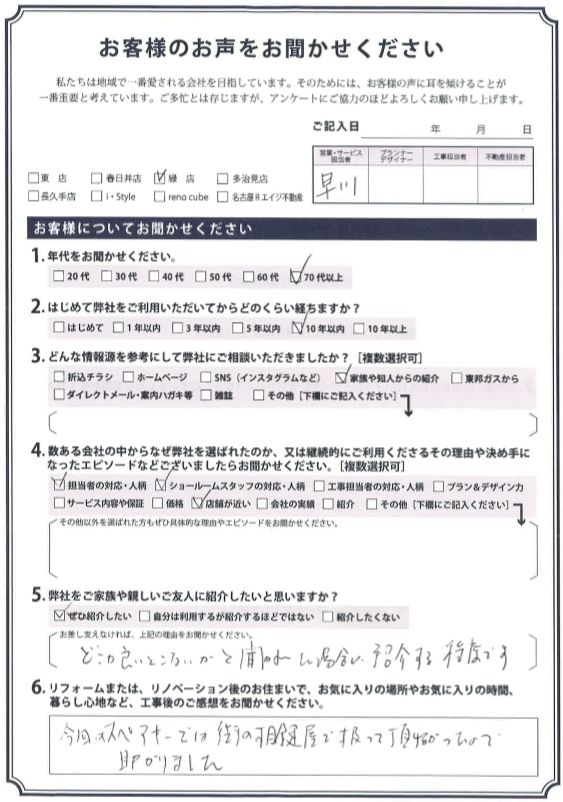 お客様のお声をお聞かせください
私たちは地域で一番愛される会社を目指しています。そのためには、お客様の声に耳を傾けることが
一番重要と考えています。ご多忙とは存じますが、アンケートにご協力のほどよろしくお願い申し上げます。
ご記入日 年 月 日
営業・サービス担当者 プランナーデザイナー 工事担当者 不動産担当者
早川
□東 店 □春日井店 ☑緑 店 □多治見店
□長久手店 □i・Style □reno cube □名古屋Rエイジ不動産
お客様についてお聞かせください
1. 年代をお聞かせください。
□20代 □30代 □40代 □50代 □60代 ☑70代以上
2. はじめて弊社をご利用いただいてからどのくらい経ちますか？
□はじめて □1年以内 □3年以内 □5年以内 ☑10年以内 □10年以上
3. どんな情報源を参考にして弊社にご相談いただきましたか？［複数選択可］
□折込チラシ □ホームページ □SNS（インスタグラムなど） ☑家族や知人からの紹介 □東邦ガスから
□ダイレクトメール・案内ハガキ等 □雑誌 □その他［下欄にご記入ください］
4. 数ある会社の中からなぜ弊社を選ばれたのか、又は継続的にご利用くださるその理由や決め手に
なったエピソードなどございましたらお聞かせください。［複数選択可］
☑担当者の対応・人柄 ☑ショールームスタッフの対応・人柄 □工事担当者の対応・人柄 □プラン＆デザイン力
□サービス内容や保証 □価格 ☑店舗が近い □会社の実績 □紹介 □その他［下欄にご記入ください］
その他以外を選ばれた方もぜひ具体的な理由やエピソードをお聞かせください。
5. 弊社をご家族や親しいご友人に紹介したいと思いますか？
☑ぜひ紹介したい □自分は利用するが紹介するほどではない □紹介したくない
お差し支えなければ、上記の理由をお聞かせください。
どこか良いところないかと聞かれた場合に紹介する程度です
6. リフォームまたは、リノベーション後のお住まいで、お気に入りの場所やお気に入りの時間、
暮らし心地など、工事後のご感想をお聞かせください。
今回のスペアキーでは街の鍵屋で扱って頂けなかったので
助かりました